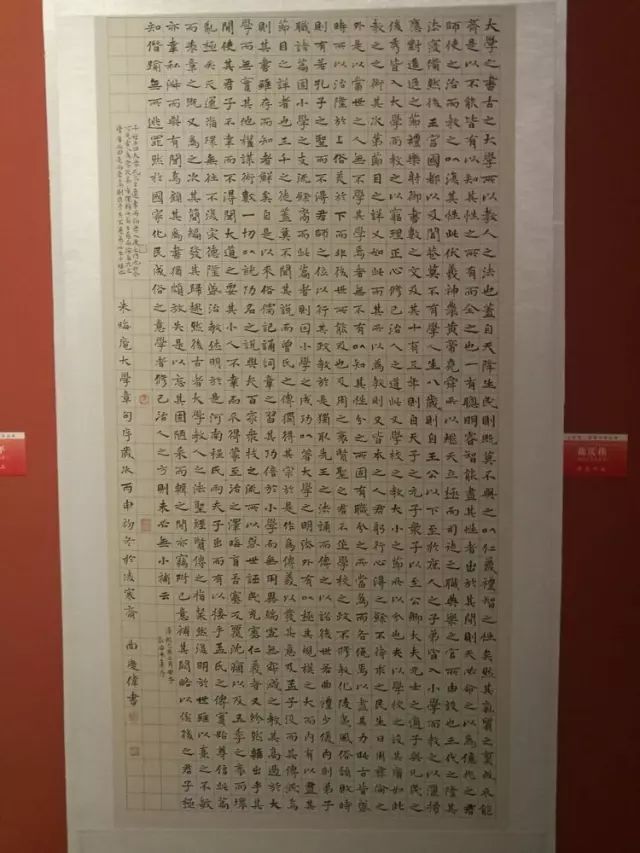 大學之書古之大學所以教人之法也蓋自天降生民則既莫不與之以仁義禮智之性矣然其氣質之稟或不能
齊是以不能皆有以知其性之所有而全之也一有聰明睿智能盡其性者出於其間則天必命之以為億兆之君
師使之治而教之以復其性此伏羲神農黃帝堯舜所以繼天立極而司徒之職典樂之官所由設也三代之隆其
法寖備然後王宮國都以及閭巷莫不有學人生八歲則自王公以下至於庶人之子弟皆入小學而教之以灑掃
應對進退之節禮樂射御書數之文及其十有五年則自天子之元子衆子以至公卿大夫元士之適子與凡民之
俊秀皆入大學而教之以窮理正心修己治人之道此又學校之教大小之節所以分也夫以學校之設其廣如此
教之之術其次第節目之詳又如此而其所以為教則又皆本之人君躬行心得之餘不待求之民生日用彝倫之
外是以當世之人無不學其學焉者無不有以知其性分之所固有職分之所當為而各俛焉以盡其力此古昔盛
時所以治隆於上俗美於下而非後世之所能及也及周之衰賢聖之君不作學校之政不修教化陵夷風俗頹敗時
則有若孔子之聖而不得君師之位以行其政教於是獨取先王之法誦而傳之以詔後世若曲禮少儀內則弟子
職諸篇固小學之支流餘裔而此篇者則因小學之成功以著大學之明法外有以極其規模之大而內有以盡其
節目之詳者也三千之徒蓋莫不聞其說而曾氏之傳獨得其宗於是作為傳義以發其意及孟子沒而其傳泯焉
則其書雖存而知者鮮矣自是以來俗儒記誦詞章之習其功倍於小學而無用異端虛無寂滅之教其高過於大
學而無實其他權謀術數一切以就功名之說與夫百家衆技之流所以惑世誣民充塞仁義者又紛然雜出乎其
間使其君子不幸而不得聞大道之要其小人不幸而不得蒙至治之澤晦盲否塞反覆沈痼以及五季之衰而壞
亂極矣天運循環無往不復宋德隆盛治教休明於是河南程氏兩夫子出而有以接乎孟氏之傳實始尊信此篇
而表章之既又為之次其簡編發其歸趣然後古者大學教人之法聖經賢傳之指粲然復明於世雖以熹之不敏
亦幸私淑而與有聞焉顧其為書猶頗放失是以忘其固陋采而輯之間亦竊附己意補其闕略以俟後之君子極
知僭踰無所逃罪然於國家化民成俗之意學者修己治人之方則未必無小補云
朱晦庵大學章句序歲次丙申初冬於凌寒齋 曲慶偉書